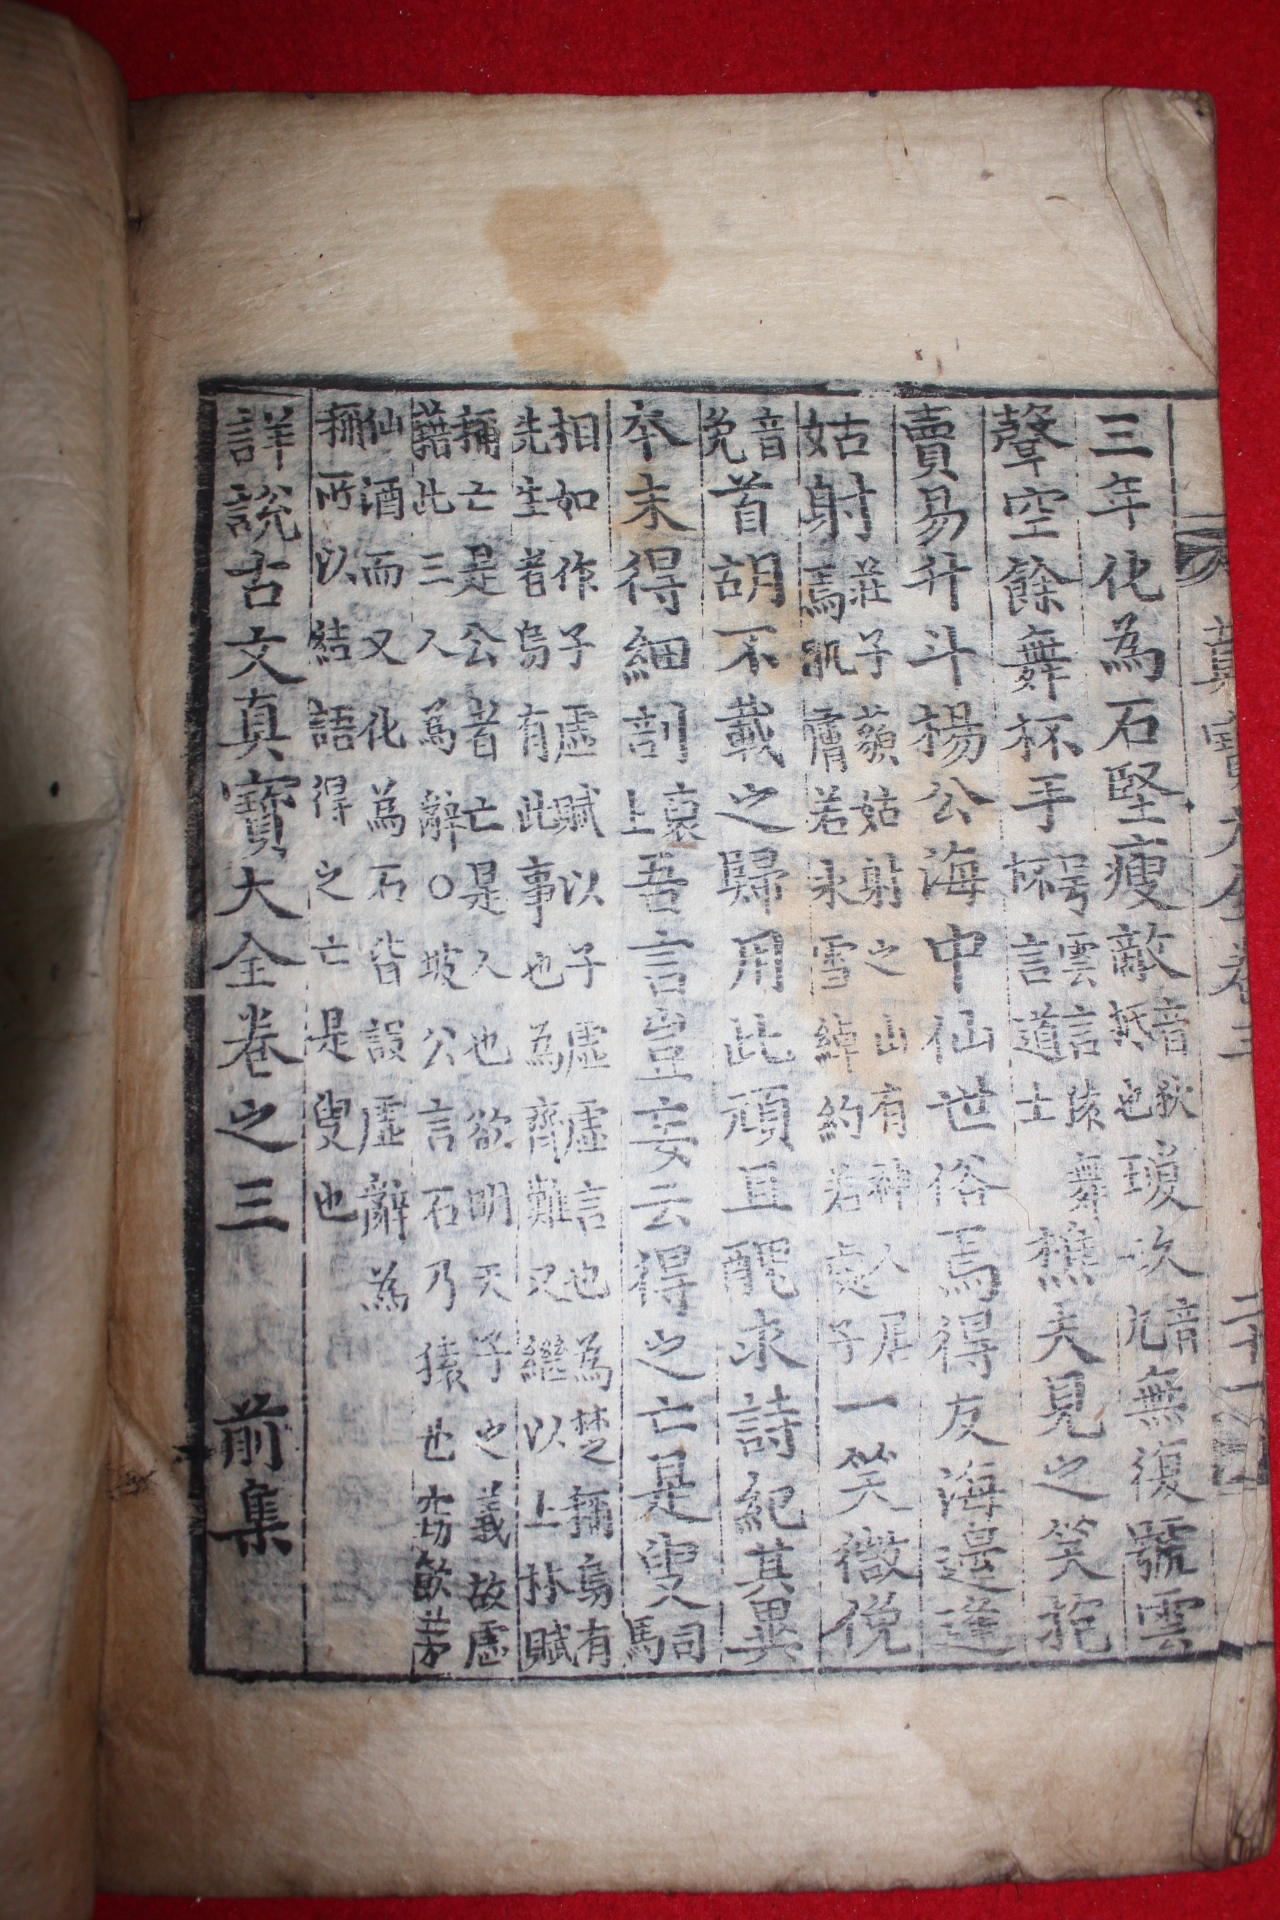 真寶大全卷三 二十一
三年化為石堅瘦敵音狄抵也瓊玖音九無復號雲
聲空餘舞杯手号雲言猿舞杯言道士樵夫見之笑抱
賣易升斗楊公海中仙世俗焉得友海邊逢
姑射莊子藐姑射之山有神人居焉肌膚若氷雪綽約若處子一笑微俛
音免首胡不載之歸用此頑且醜求詩紀其異
卒未得細剖上吾言豈妄云得之亡是叟司馬
相如作子虛賦以子虛虛言也為楚稱烏有
先生者烏有此事也為齊難又繼以上林賦
稱亡是公者亡是人也欲明天子之義故虛
藉此三人為辭○坡公言石乃猿也窃飲茅
仙酒而又化為石皆設虛辭為
稱所以結語得之亡是叟也
詳說古文真寶大全卷之三 前集